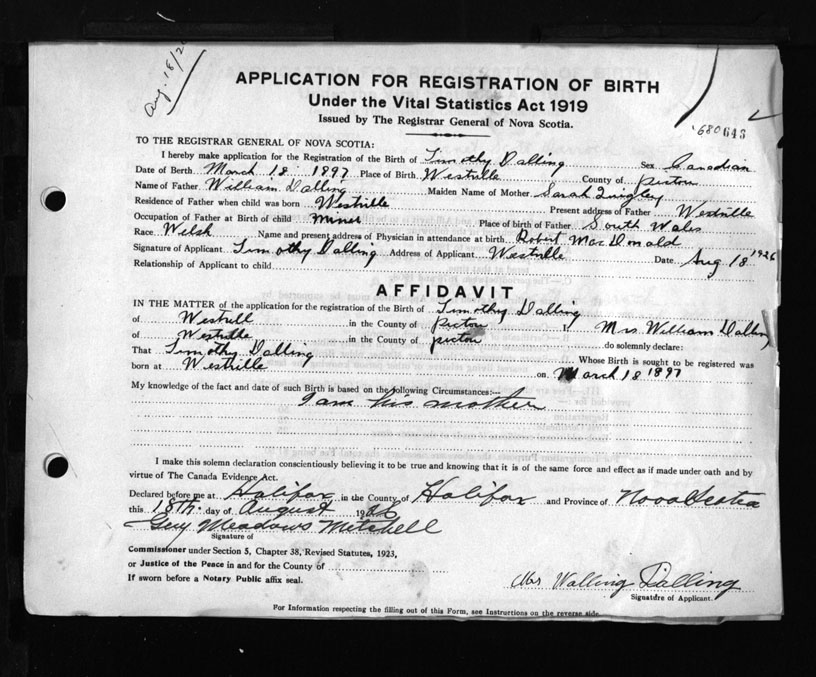 Aug. 18/26
APPLICATION FOR REGISTRATION OF BIRTH
Under the Vital Statistics Act 1919
Issued by The Registrar General of Nova Scotia.
680643
TO THE REGISTRAR GENERAL OF NOVA SCOTIA:
I hereby make application for the Registration of the Birth of Timothy Dalling Sex Canadian
Date of Birth March 18 1897 Place of Birth Westville County of Pictou
Name of Father William Dalling Maiden Name of Mother Sarah Quigley
Residence of Father when child was born Westville Present address of Father Westville
Occupation of Father at Birth of child Miner Place of birth of Father South Wales
Race Welsh Name and present address of Physician in attendance at birth Robert MacDonald
Signature of Applicant Timothy Dalling Address of Applicant Westville Date Aug 18 1926
Relationship of Applicant to child
AFFIDAVIT
IN THE MATTER of the application for the registration of the Birth of Timothy Dalling
of Westvill in the County of Pictou Mrs William Dalling
of Westville in the County of Pictou do solemnly declare:
That Timothy Dalling Whose Birth is sought to be registered was
born at Westville on March 18 1897
My knowledge of the fact and date of such Birth is based on the following Circumstances:—
I am his mother
I make this solemn declaration conscientiously believing it to be true and knowing that it is of the same force and effect as if made under oath and by
virtue of The Canada Evidence Act.
Declared before me at Halifax in the County of Halifax and Province of Nova Scotia
this 18th. day of August 1926
Guy Meadows Mitchell
Signature of
Commissioner under Section 5, Chapter 38, Revised Statutes, 1923,
or Justice of the Peace in and for the County of
If sworn before a Notary Public affix seal.
Mrs Walling Dalling
Signature of Applicant.
For Information respecting the filling out of this Form, see Instructions on the reverse side.